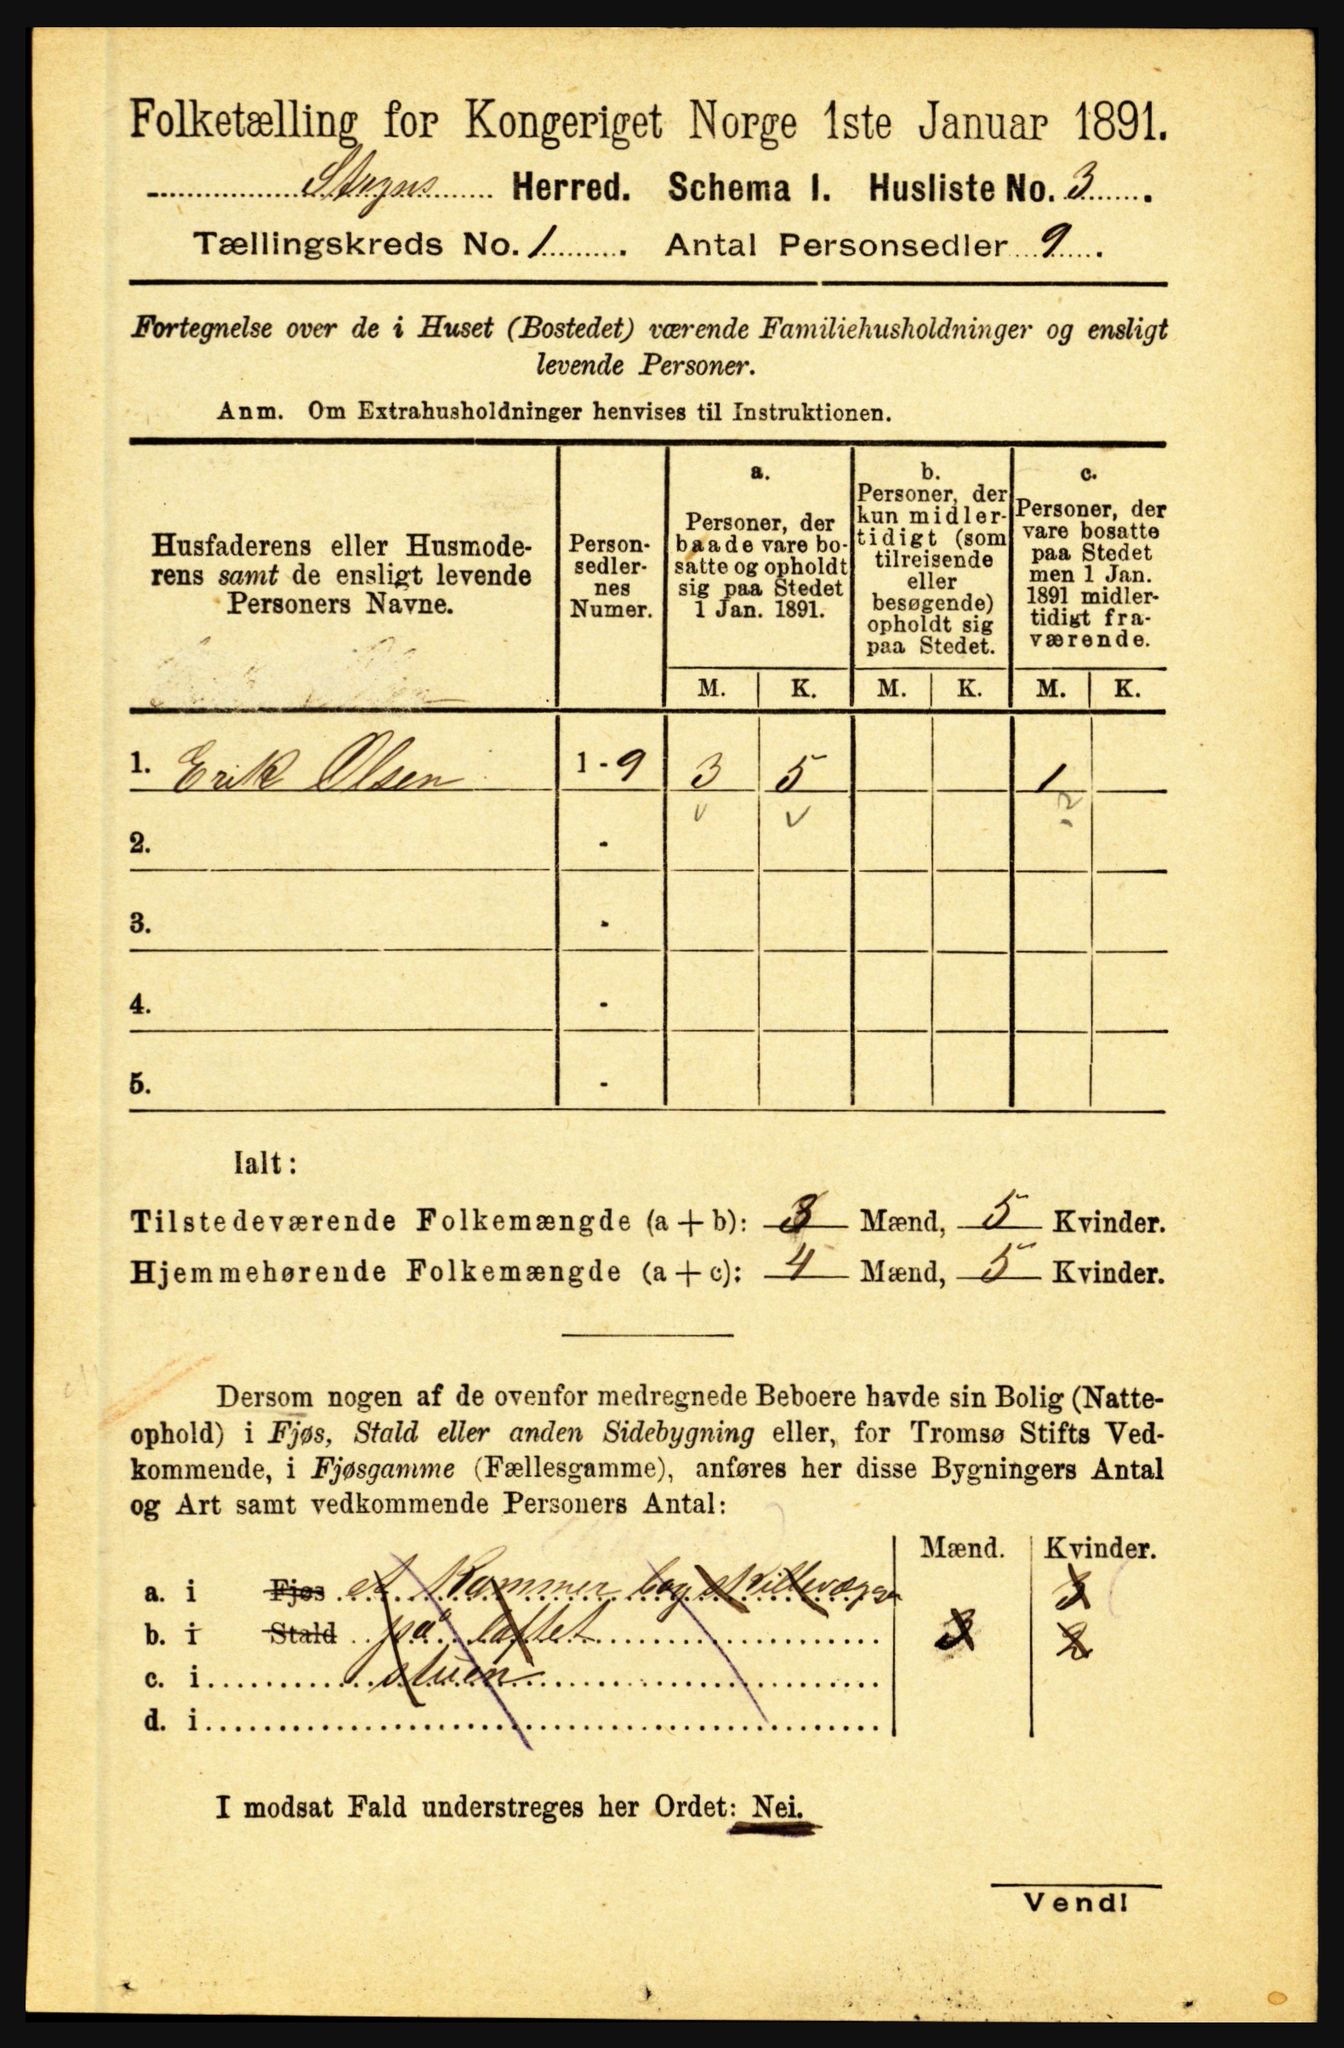 Folketælling for Kongeriget Norge 1ste Januar 1891.
Stegns Herred. Schema I. Husliste No. 3.
Tællingskreds No. 1. Antal Personsedler 9.
Fortegnelse over de i Huset (Bostedet) værende Familiehusholdninger og ensligt
levende Personer.
Anm. Om Extrahusholdninger henvises til Instruktionen.
Husfaderens eller Husmode-
rens samt de ensligt levende
Personers Navne.
Person-
sedler-
nes
Numer.
a.
Personer, der
baade vare bo-
satte og opholdt
sig paa Stedet
1 Jan. 1891.
b.
Personer, der
kun midler-
tidigt (som
tilreisende
eller
besøgende)
opholdt sig
paa Stedet.
c.
Personer, der
vare bosatte
paa Stedet
men 1 Jan.
1891 midler-
tidigt fra-
værende.
M. K. M. K. M. K.
1. Erik Olsen 1-9 3 5 1
2. -
3. -
4. -
5. -
Ialt:
Tilstedeværende Folkemængde (a + b): 3 Mænd, 5 Kvinder.
Hjemmehørende Folkemængde (a + c): 4 Mænd, 5 Kvinder.
Dersom nogen af de ovenfor medregnede Beboere havde sin Bolig (Natte-
ophold) i Fjøs, Stald eller anden Sidebygning eller, for Tromsø Stifts Ved-
kommende, i Fjøsgamme (Fællesgamme), anføres her disse Bygningers Antal
og Art samt vedkommende Personers Antal:
Mænd. Kvinder.
a. i Fjøs et Kammer bag skillevægge 3
b. i Stald på loftet 3 2
c. i stuen
d. i
I modsat Fald understreges her Ordet: Nei.
Vend!